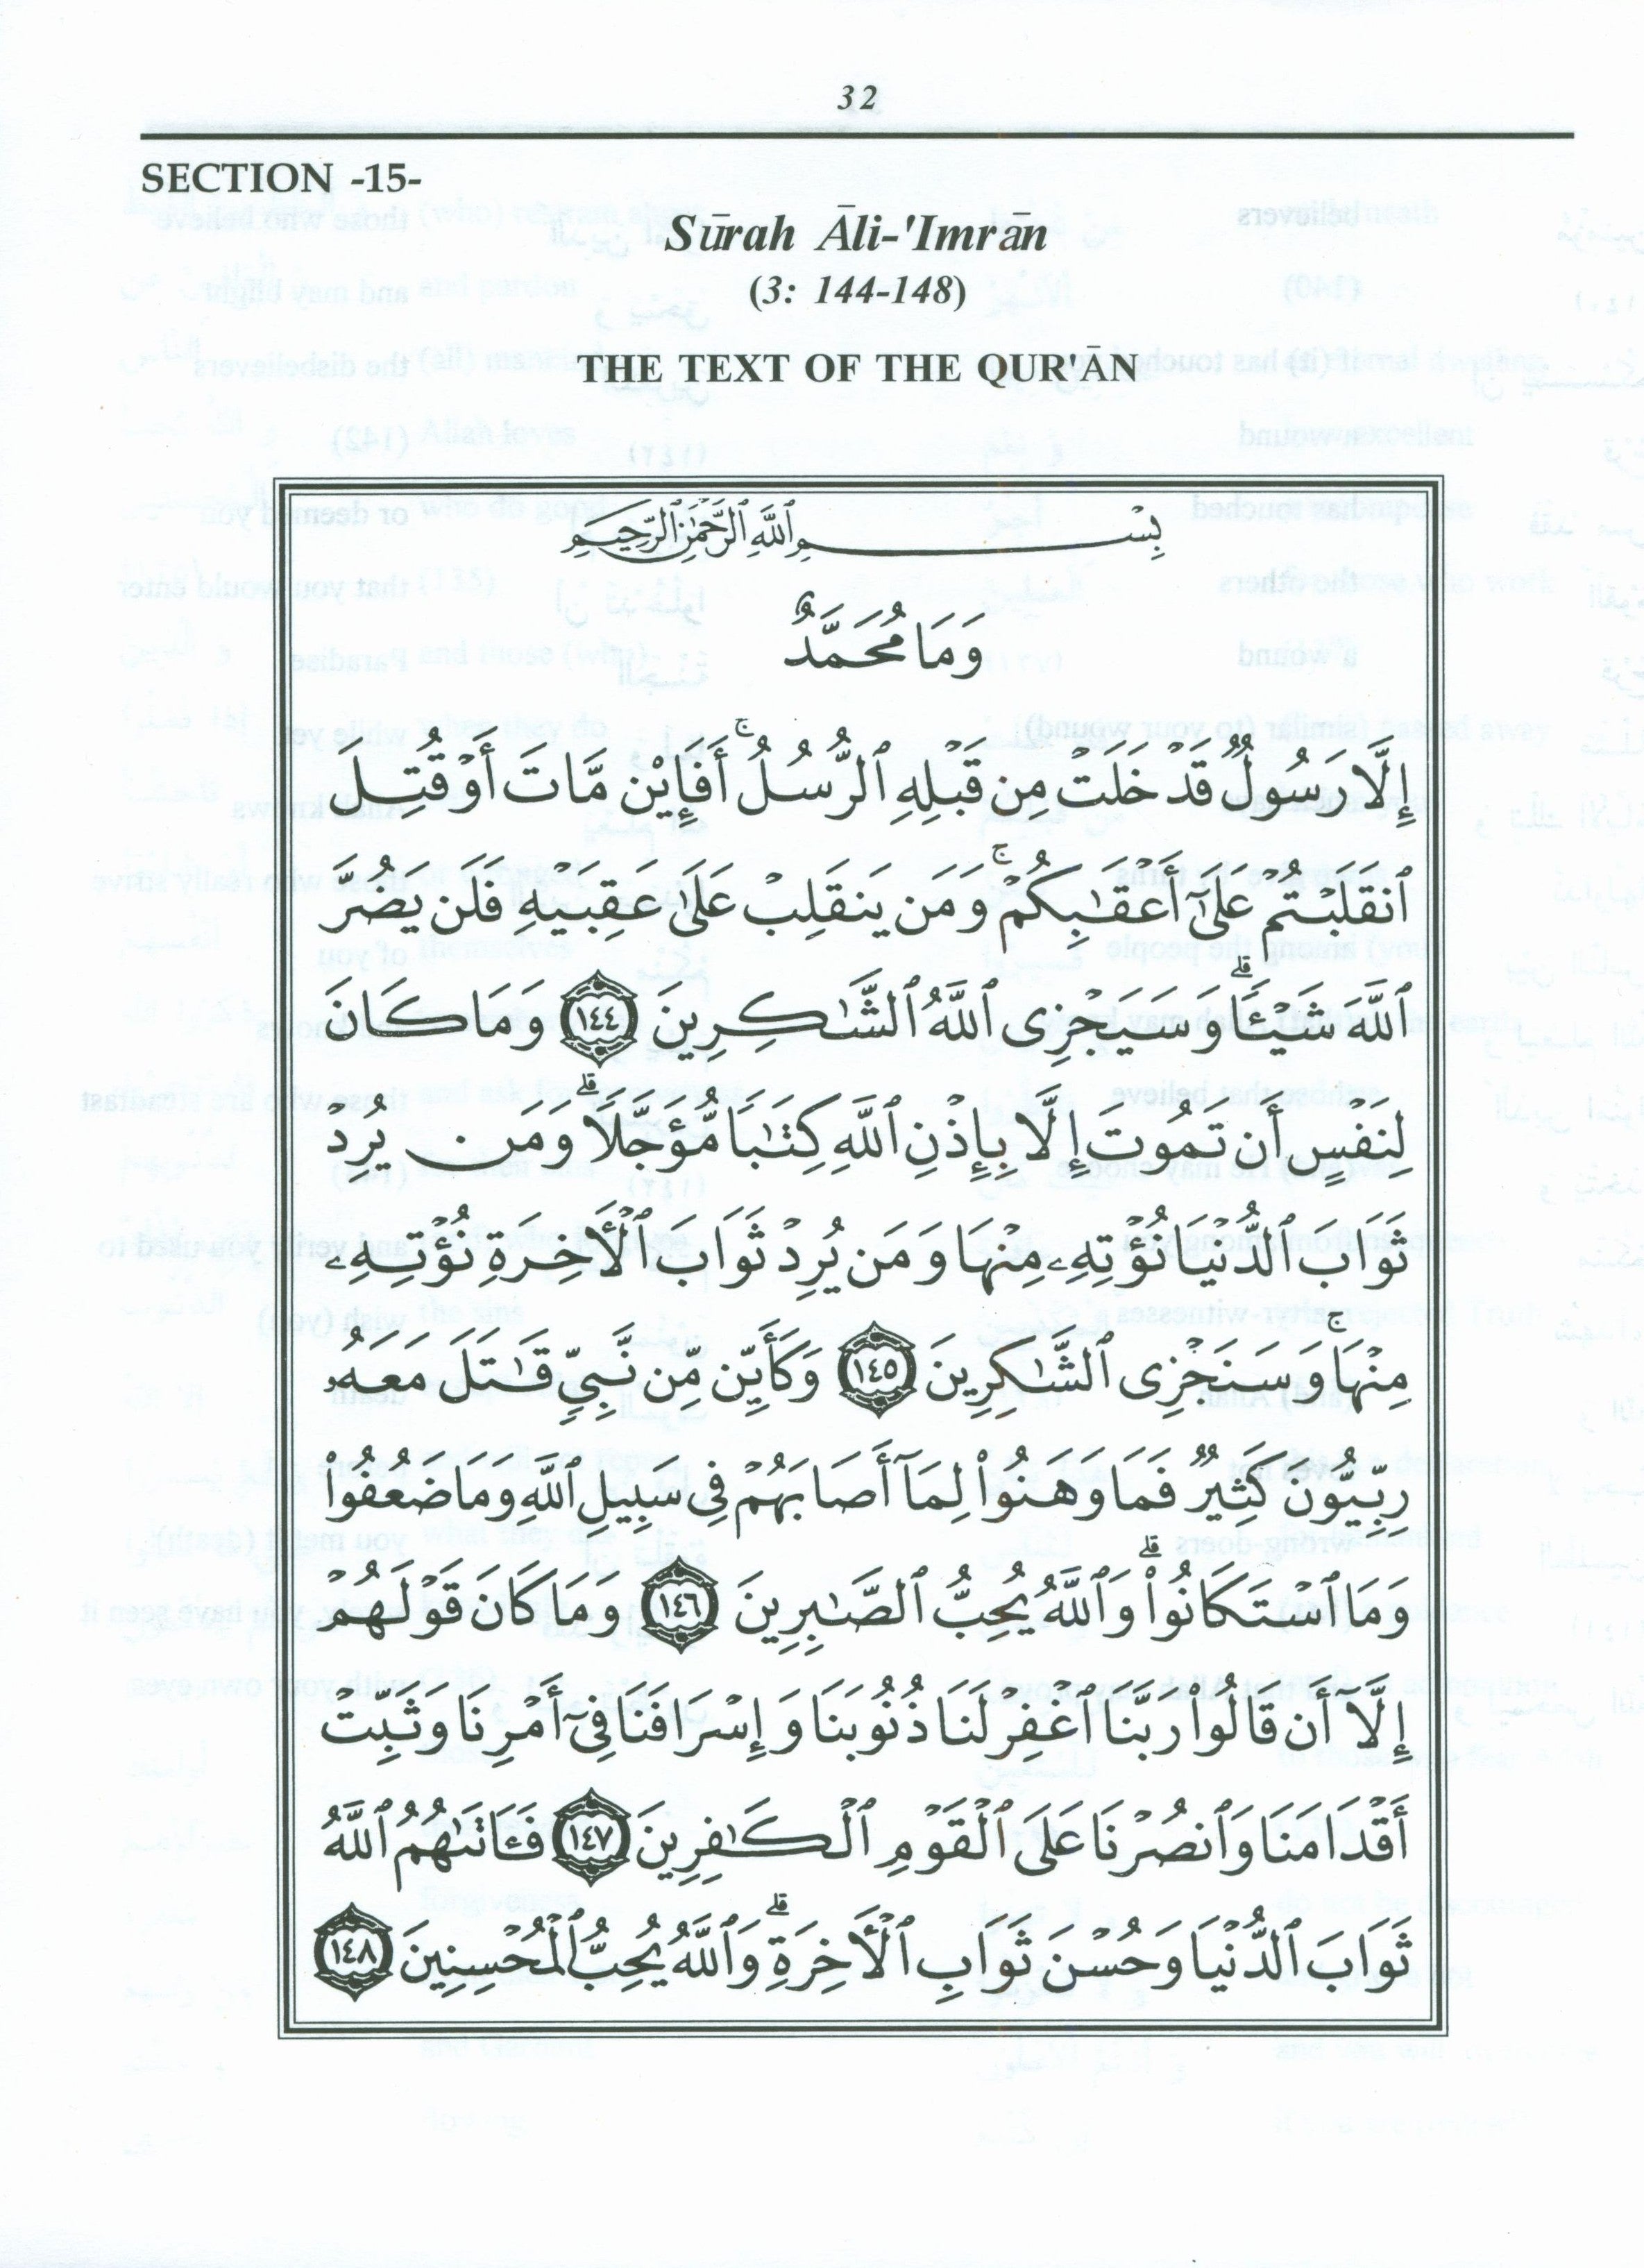 32
SECTION -15-
Sūrah Āli-'Imrān
(3: 144-148)
THE TEXT OF THE QUR'ĀN
بِسْمِ ٱللَّهِ ٱلرَّحْمَٰنِ ٱلرَّحِيمِ
وَمَا مُحَمَّدٌ
إِلَّا رَسُولٌ قَدْ خَلَتْ مِن قَبْلِهِ ٱلرُّسُلُ ۚ أَفَإِيْن مَّاتَ أَوْ قُتِلَ
ٱنقَلَبْتُمْ عَلَىٰٓ أَعْقَٰبِكُمْ ۚ وَمَن يَنقَلِبْ عَلَىٰ عَقِبَيْهِ فَلَن يَضُرَّ
ٱللَّهَ شَيْـًٔا ۗ وَسَيَجْزِى ٱللَّهُ ٱلشَّٰكِرِينَ ١٤٤ وَمَا كَانَ
لِنَفْسٍ أَن تَمُوتَ إِلَّا بِإِذْنِ ٱللَّهِ كِتَٰبًا مُّؤَجَّلًا ۗ وَمَن يُرِدْ
ثَوَابَ ٱلدُّنْيَا نُؤْتِهِۦ مِنْهَا وَمَن يُرِدْ ثَوَابَ ٱلْأَخِرَةِ نُؤْتِهِۦ
مِنْهَا ۚ وَسَنَجْزِى ٱلشَّٰكِرِينَ ١٤٥ وَكَأَيِّن مِّن نَّبِىٍّ قَٰتَلَ مَعَهُۥ
رِبِّيُّونَ كَثِيرٌ فَمَا وَهَنُوا۟ لِمَآ أَصَابَهُمْ فِى سَبِيلِ ٱللَّهِ وَمَا ضَعُفُوا۟
وَمَا ٱسْتَكَانُوا۟ ۗ وَٱللَّهُ يُحِبُّ ٱلصَّٰبِرِينَ ١٤٦ وَمَا كَانَ قَوْلَهُمْ
إِلَّآ أَن قَالُوا۟ رَبَّنَا ٱغْفِرْ لَنَا ذُنُوبَنَا وَإِسْرَافَنَا فِىٓ أَمْرِنَا وَثَبِّتْ
أَقْدَامَنَا وَٱنصُرْنَا عَلَى ٱلْقَوْمِ ٱلْكَٰفِرِينَ ١٤٧ فَـَٔاتَىٰهُمُ ٱللَّهُ
ثَوَابَ ٱلدُّنْيَا وَحُسْنَ ثَوَابِ ٱلْأَخِرَةِ ۗ وَٱللَّهُ يُحِبُّ ٱلْمُحْسِنِينَ ١٤٨